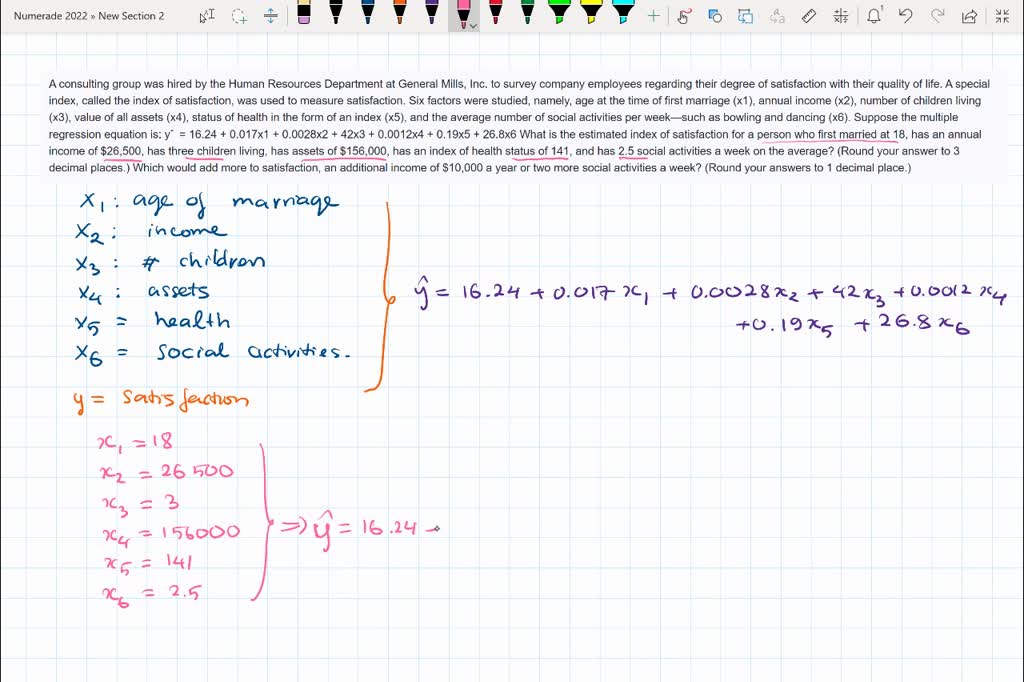 Numerade 2022 » New Section 2
A consulting group was hired by the Human Resources Department at General Mills, Inc. to survey company employees regarding their degree of satisfaction with their quality of life. A special
index, called the index of satisfaction, was used to measure satisfaction. Six factors were studied, namely, age at the time of first marriage (x1), annual income (x2), number of children living
(x3), value of all assets (x4), status of health in the form of an index (x5), and the average number of social activities per week—such as bowling and dancing (x6). Suppose the multiple
regression equation is: yˆ = 16.24 + 0.017x1 + 0.0028x2 + 42x3 + 0.0012x4 + 0.19x5 + 26.8x6 What is the estimated index of satisfaction for a person who first married at 18, has an annual
income of $26,500, has three children living, has assets of $156,000, has an index of health status of 141, and has 2.5 social activities a week on the average? (Round your answer to 3
decimal places.) Which would add more to satisfaction, an additional income of $10,000 a year or two more social activities a week? (Round your answers to 1 decimal place.)
x₁ : age of marriage
x₂ : income
x₃ : # children
x₄ : assets
x₅ = health
x₆ = social activities.
ŷ = 16.24 + 0.017 x₁ + 0.0028x₂ + 42x₃ + 0.0012 x₄
+0.19x₅ + 26.8x₆
y = satisfaction
x₁ = 18
x₂ = 26 500
x₃ = 3
x₄ = 156000
x₅ = 141
x₆ = 2.5
⇒ ŷ = 16.24 -